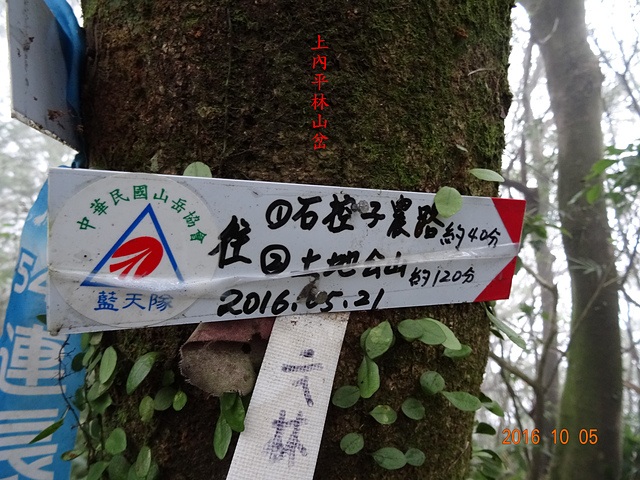 上內平林山岔
中華民國山岳協會
藍天隊
往
①石控子農路約40分
②土地公山約120分
2016.05.21
林
2016 10 05